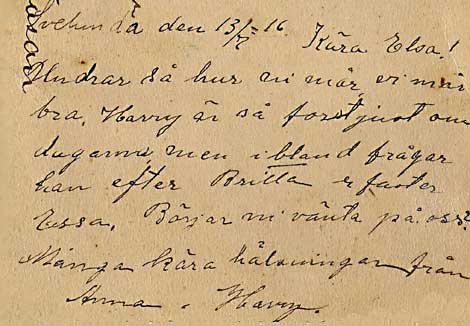 den 13/7 16. Kära Elsa!
Undrar så hur ni mår, vi mår
bra, Harry är så förtjust om
dagarna, men ibland frågar
han efter Britta & faster
Essa, Börjar ni vänta på oss?
Många kära hälsningar från
Anna. Harry.